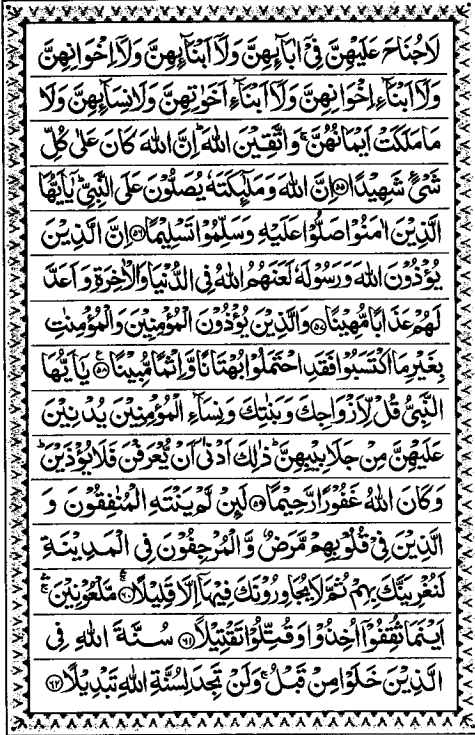 لَاجُنَاحَ عَلَيْهِنَّ فِیْۤ اٰبَآىِٕهِنَّ وَلَاۤ اَبْنَآىِٕهِنَّ وَلَاۤ اِخْوَانِهِنَّ
وَلَاۤ اَبْنَآءِ اِخْوَانِهِنَّ وَلَاۤ اَبْنَآءِ اَخَوٰتِهِنَّ وَلَا نِسَآىِٕهِنَّ وَلَا
مَا مَلَكَتْ اَيْمَانُهُنَّ ۚ وَاتَّقِيْنَ اللّٰهَ ؕ اِنَّ اللّٰهَ كَانَ عَلٰى كُلِّ
شَیْءٍ شَهِيْدًا ﴿۵۵﴾ اِنَّ اللّٰهَ وَمَلٰٓىِٕكَتَهٗ يُصَلُّوْنَ عَلَى النَّبِیِّ ؕ يٰۤاَيُّهَا
الَّذِيْنَ اٰمَنُوْا صَلُّوْا عَلَيْهِ وَسَلِّمُوْا تَسْلِيْمًا ﴿۵۶﴾ اِنَّ الَّذِيْنَ
يُؤْذُوْنَ اللّٰهَ وَرَسُوْلَهٗ لَعَنَهُمُ اللّٰهُ فِی الدُّنْيَا وَالْاٰخِرَةِ وَاَعَدَّ
لَهُمْ عَذَابًا مُّهِيْنًا ﴿۵۷﴾ وَالَّذِيْنَ يُؤْذُوْنَ الْمُؤْمِنِيْنَ وَالْمُؤْمِنٰتِ
بِغَيْرِ مَا اكْتَسَبُوْا فَقَدِ احْتَمَلُوْا بُهْتَانًا وَّاِثْمًا مُّبِيْنًا ﴿۵۸﴾ يٰۤاَيُّهَا
النَّبِیُّ قُلْ لِّاَزْوَاجِكَ وَبَنٰتِكَ وَنِسَآءِ الْمُؤْمِنِيْنَ يُدْنِيْنَ
عَلَيْهِنَّ مِنْ جَلَابِيْبِهِنَّ ؕ ذٰلِكَ اَدْنٰۤى اَنْ يُّعْرَفْنَ فَلَا يُؤْذَيْنَ ؕ
وَكَانَ اللّٰهُ غَفُوْرًا رَّحِيْمًا ﴿۵۹﴾ لَىِٕنْ لَّمْ يَنْتَهِ الْمُنٰفِقُوْنَ وَ
الَّذِيْنَ فِیْ قُلُوْبِهِمْ مَّرَضٌ وَّالْمُرْجِفُوْنَ فِی الْمَدِيْنَةِ
لَنُغْرِيَنَّكَ بِهِمْ ثُمَّ لَا يُجَاوِرُوْنَكَ فِيْهَاۤ اِلَّا قَلِيْلًا ﴿۶۰﴾ مَّلْعُوْنِيْنَ ۛۚ
اَيْنَمَا ثُقِفُوْۤا اُخِذُوْا وَقُتِّلُوْا تَقْتِيْلًا ﴿۶۱﴾ سُنَّةَ اللّٰهِ فِی
الَّذِيْنَ خَلَوْا مِنْ قَبْلُ ۚ وَلَنْ تَجِدَ لِسُنَّةِ اللّٰهِ تَبْدِيْلًا ﴿۶۲﴾